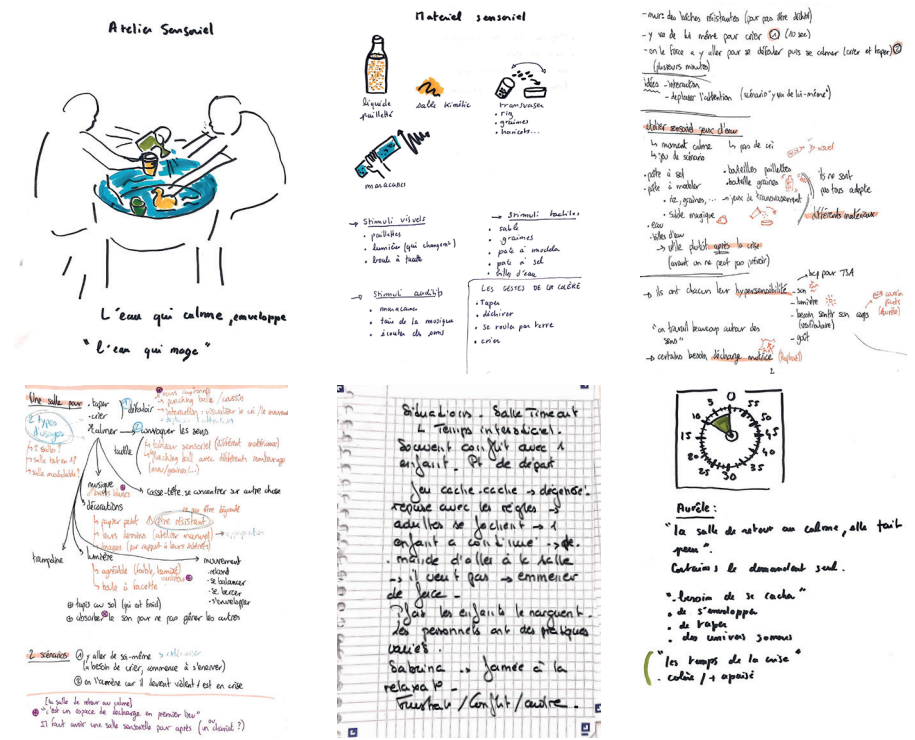 Atelier Sensoriel
L'eau qui calme, enveloppe
"l'eau qui nage"
Materiel sensoriel
liquide
pailleté
sable kinétic
transvaser
• riz
• graimes
• haricots...
maracasses
→ Stimuli visuels
• paillettes
• lumière (qui changent)
• boule à facette
→ Stimuli tactiles
• sable
• graimes
• pate à modeler
• pate à sel
• billes d'eau
→ Stimuli auditifs
• maracasses
• faire de la musique
• écouter des sons
LES GESTES DE LA COLÈRE
• Taper
• déchirer
• se rouler par terre
• crier
- murs: des bâches résistantes (pour pas être détruit)
- y va de lui même pour crier ① (10 sec)
- on le force a y aller pour se défouler puis se calmer (crier et taper) ②
(plusieurs minutes)
idées - interaction
- déplacer l'attention (scénario "y va de lui-même")
atelier sensoriel jeux d'eau
↳ moment calme ↳ pas de cri
↳ jeu de scénario
• pâte à sel
• pâte à modeler
• bouteilles paillettes
• bouteille graines
ils ne sont
pas tous adapte
• riz, graines, ... → jeux de transvasement
• sable magique
différents matériaux
• eau
• billes d'eau
→ utile plutôt après la crise
(avant on ne peut pas prévoir)
→ ils ont chacun leur hypersensibilité
→ bcp pour TSA
- son
- lumière
- besoin sentir son corps
(vestibulaire)
- goût
"on travail beaucoup autour des
sens"
→ certains besoin décharge motrice (Raphaël)
2
Une salle pour
• taper
• crier
① défouloir
punching balls / coussin
• se calmer ② convoquer les sens
2 types
d'usages
↳ 2 salles?
↳ salle tout en 1?
↳ salle modulable?
tactile
↳ tableau sensoriel (différents matériaux)
↳ punching ball avec différents rembourrages
musique
casse-tête, se concentrer sur autre chose
décorations
↳ papier peint ⚠ être résistant
↳ leurs dessins (atelier manuel)
trampoline
lumière
↳ agréable (faible, tamisée)
↳ boule à facette
mouvement
- se balancer
- se bercer
- s'envelopper
⊕ tapis au sol (qui est froid)
⊕ absorber le son pour ne pas gêner les autres
2 scénarios ① y aller de soi-même
(a besoin de crier, commence à s'énerver)
② on l'amène car il devient violent / est en crise
(la salle de retour au calme)
"c'est un espace de décharge en premier lieu"
Il faut avoir une salle sensorielle pour après (ou un chariot?)
Situations - Salle Time out
↳ Temps interstitiel.
Souvent conflit avec 1
enfant. Pt de départ
Jeu cache-cache → dégénéré.
refuse avec les règles →
adultes se fachent → 1
enfant a continué →
d'aller à la salle
→ il veut pas → emmener
de force -
les enfants le narguent
Les personnels ont des pratiques
variés.
Sabrina → formée à la
relaxat° -
Frustrat° / Conflit / autre.
0
55
50
45
40
35
30
25
20
15
10
5
Aurèle:
"la salle de retour au calme, elle fait
peur".
Certains le demandent seul.
"- besoin de se cacher"
• de s'envelopper
• de taper
• des univers sonores
"les temps de la crise"
- colère / + apaisé